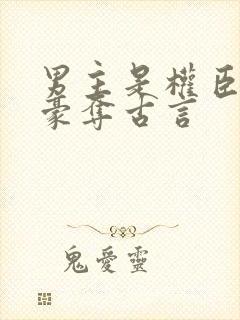 男主是權臣
豪奪古言
鬼愛靈